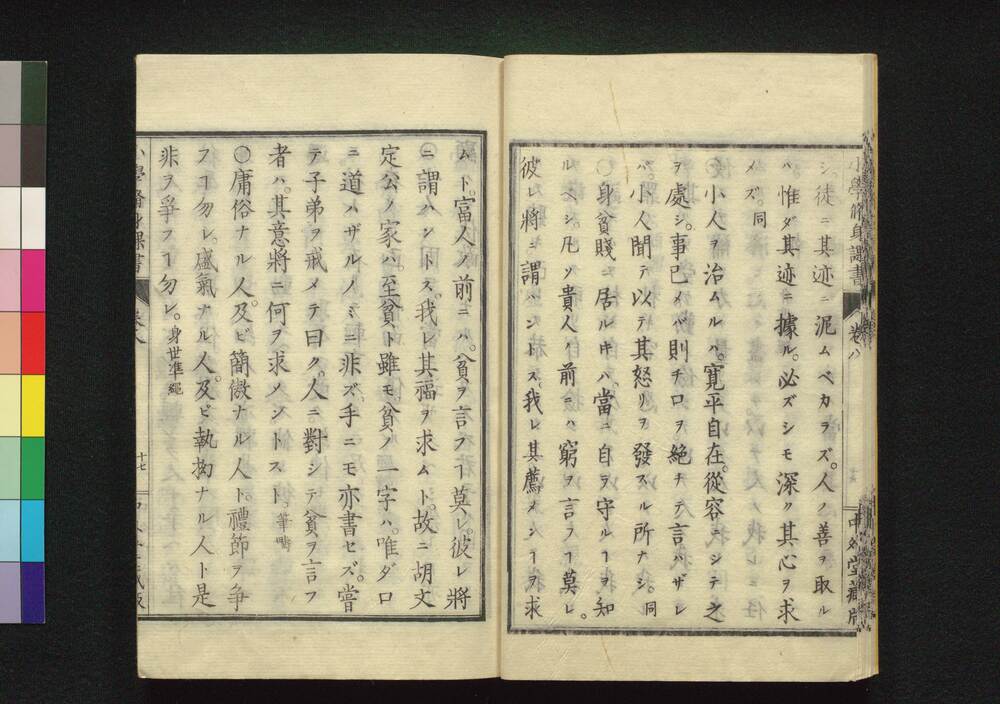 小學修身課書 卷八 中外堂藏版
シ。徒ニ其迹ニ泥ムベカラズ。人ノ善ヲ取ル
ハ惟ダ其迹ニ據ル。必ズシモ深ク其心ヲ求
メズ。同
〇小人ヲ治ムルハ。寬平自在。從容ニシテ之
ヲ處シ。事已メバ則チ口ヲ絕チテ言ハザレ
バ。小人聞テ以テ其怒リヲ發スル所ナシ。同
〇身貧賤ニ居ルキハ。當ニ自ヲ守ルヿヲ知
ルベシ。凡ソ貴人ノ前ニハ窮ヲ言フヿ莫レ。
彼レ將ニ謂ハントス。我レ其薦メンヿヲ求
ムト。富人ノ前ニハ。貧ヲ言フヿ莫レ。彼レ將
ニ謂ハントス。我レ其福ヲ求ムト。故ニ胡文
定公ノ家ハ。至貧ト雖モ。貧ノ一字ハ。唯ダ口
ニ道ハザルノミニ非ズ。手ニモ亦書セズ。嘗
テ子弟ヲ戒メテ曰ク。人ニ對シテ貧ヲ言フ
者ハ。其意將ニ何ヲ求メントスト。筆疇
〇庸俗ナル人。及ビ簡傲ナル人ト。禮節ヲ爭
フヿ勿レ。盛氣ナル人。及ビ執拗ナル人ト是
非ヲ爭フヿ勿レ。身世準繩
小學修身課書 卷八 十七